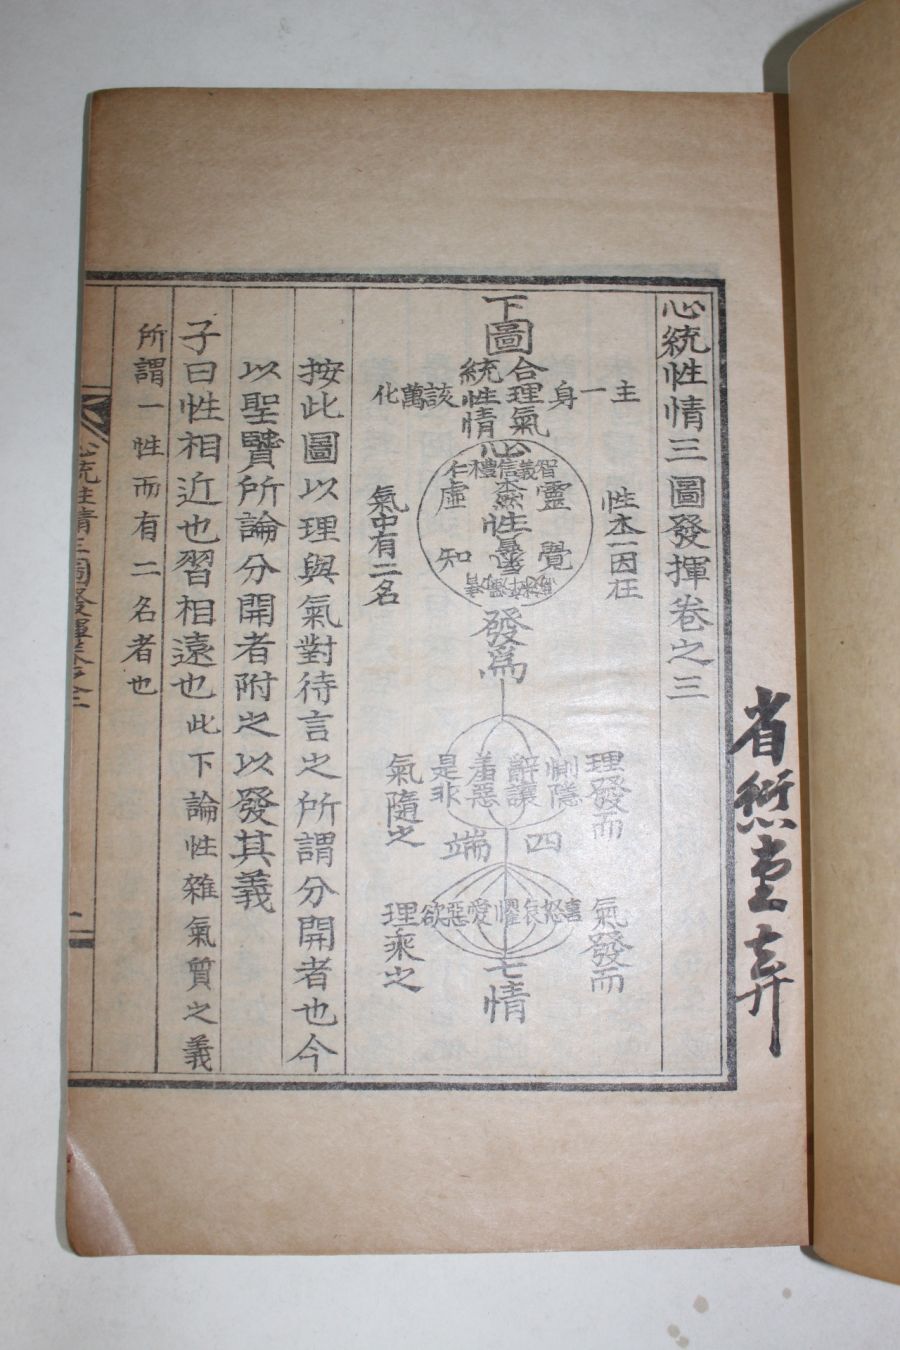 心統性情三圖發揮卷之三
下圖
合理氣
統性情
主一身
該萬化
心
仁禮信義智
本然
性
氣質
虛靈
知覺
性本一因在
氣中有二名
發爲
惻隱
辭讓
羞惡
是非
四端
理發而
氣隨之
喜怒哀懼愛惡欲
七情
氣發而
理乘之
按此圖以理與氣對待言之所謂分開者也今
以聖賢所論分開者附之以發其義
子曰性相近也習相遠也此下論性雜氣質之義
所謂一性而有二名者也
心統性情三圖發揮卷之三
一